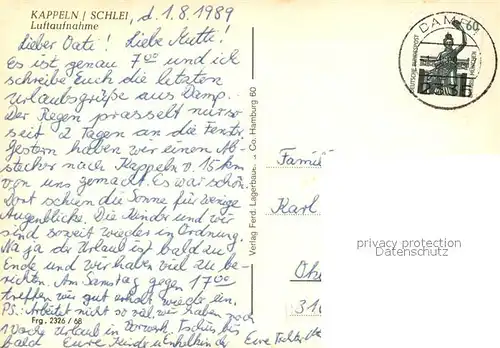 KAPPELN / SCHLEI, d. 1.8.1989
Luftaufnahme
Lieber Vati! Liebe Mutti!
Es ist genau 7⁰⁰ und ich
schreibe Euch die letzten
Urlaubsgrüße aus Damp.
Der Regen prasselt nur so
seit 2 Tagen an die Fenster.
Gestern haben wir einen Ab-
stecher nach Kappeln v. 15 km
von uns gemacht. Es war schön.
Dort schien die Sonne für wenige
Augenblicke. Die Kinder und wir
sind soweit wieder in Ordnung.
Na ja der Urlaub ist bald zu
Ende und wir haben viel zu be-
richten. Am Samstag gegen 17⁰⁰
treffen wir gut erholt wieder ein.
PS: Arbeitet nicht so viel, wir haben noch
1 Woche Urlaub in Tschüs bis
bald Eure Kinder u. Enkelkinder
Frg. 2326 / 68
Verlag Ferd. Lagerbauer & Co. Hamburg 60
DAMP
2336
60
DEUTSCHE BUNDESPOST
MÜNCHEN
Famili
Karl
310
privacy protection
Datenschutz